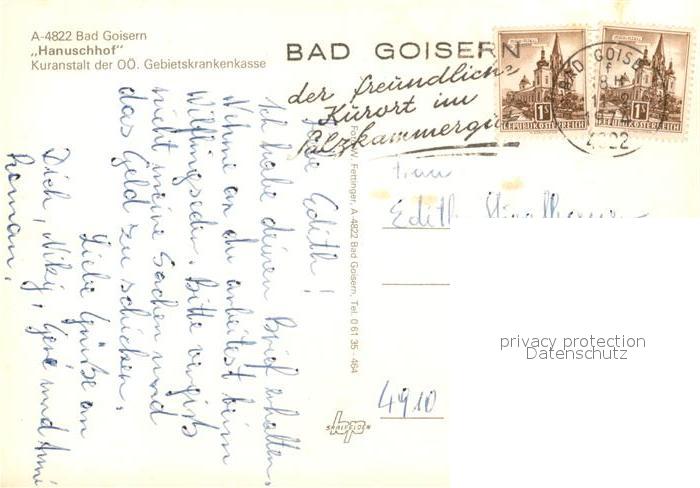 A-4822 Bad Goisern
„Hanuschhof"
Kuranstalt der OÖ. Gebietskrankenkasse
BAD GOISERN
der freundliche
Kurort im
Salzkammergut
1 S
REPUBLIK ÖSTERREICH
1 S
REPUBLIK ÖSTERREICH
BAD GOISERN
4822
Liebe Edith!
Ich habe deinen Brief erhalten.
Nehme an du arbeitest beim
Wilflingseder. Bitte vergiß
nicht meine Sachen und
das Geld zu schicken.
Liebe Grüße an
Dich, Niky, Geré und Ami
Roman.
Foto: W. Fettinger, A-4822 Bad Goisern, Tel. 0 61 35 - 464
Frau
Edith
4910
SAALFELDEN
privacy protection
Datenschutz